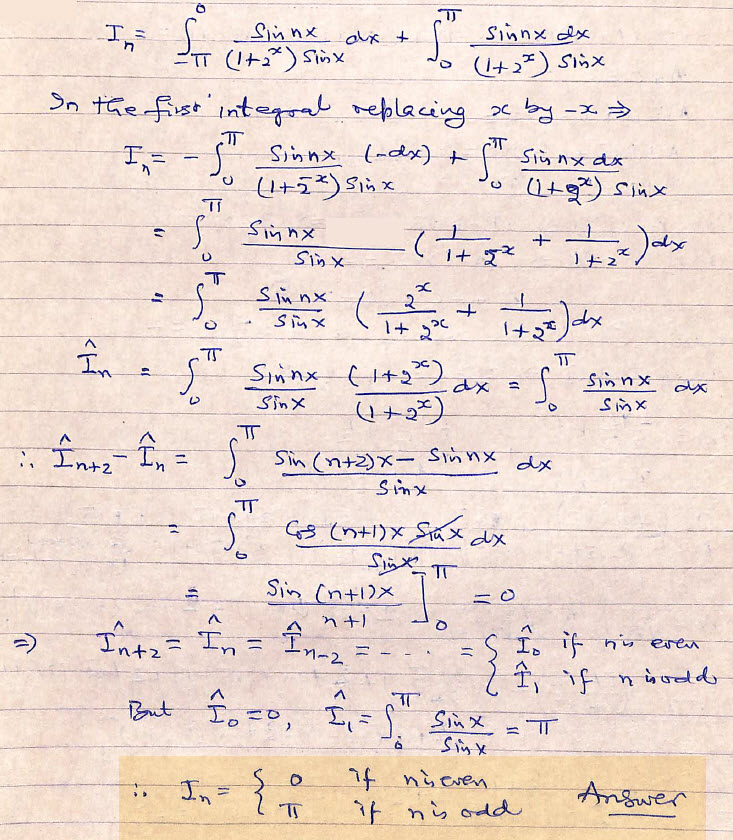 I_n = ∫_{-π}^{0} Sin nx / ((1+2^x) Sin x) dx + ∫_0^π Sin nx dx / ((1+2^x) Sin x)
In the first integral replacing x by -x ⇒
I_n = - ∫_0^π Sin nx (-dx) / ((1+2^{-x}) Sin x) + ∫_0^π Sin nx dx / ((1+2^x) Sin x)
= ∫_0^π Sin nx / Sin x ( 1/(1+2^{-x}) + 1/(1+2^x) ) dx
= ∫_0^π Sin nx / Sin x ( 2^x/(1+2^x) + 1/(1+2^x) ) dx
Î_n = ∫_0^π Sin nx / Sin x (1+2^x)/(1+2^x) dx = ∫_0^π Sin nx / Sin x dx
∴ Î_{n+2} - Î_n = ∫_0^π (Sin (n+2)x - Sin nx) / Sin x dx
= ∫_0^π Cos (n+1)x Sin x dx / Sin x
= Sin (n+1)x / (n+1) ]_0^π = 0
⇒ Î_{n+2} = Î_n = Î_{n-2} = - - - . = { Î_0 if n is even
Î_1 if n is odd
But Î_0 = 0, Î_1 = ∫_0^π Sin x / Sin x = π
∴ I_n = { 0 if n is even Answer
π if n is odd